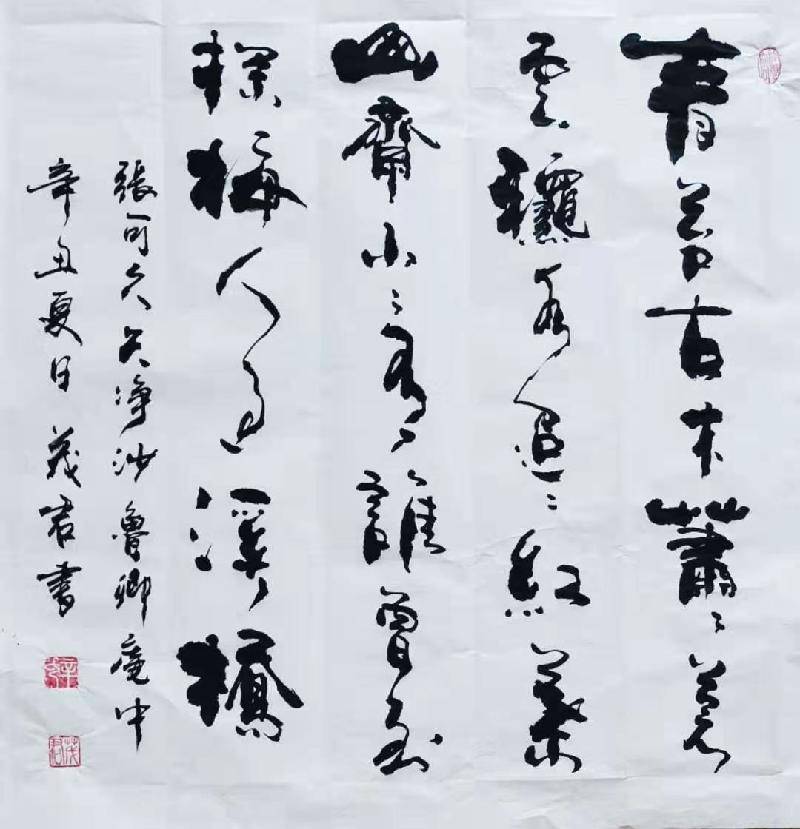 青苔古木蕭々蒼
雲龝水迢々紅葉
山齋小々有誰曾到
探梅人過溪橋
張可久天净沙魯卿庵中
辛丑夏日茂君書